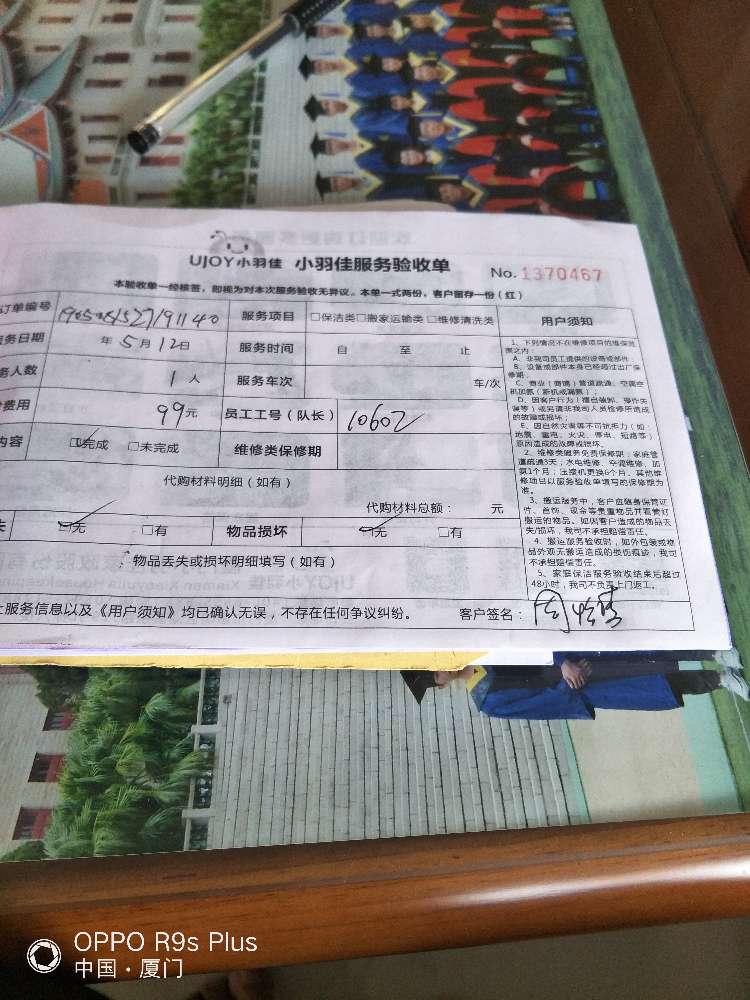 UJOY小羽佳 小羽佳服务验收单 No. 1370467
本验收单一经核签，即视为对本次服务验收无异议。本单一式两份，客户留存一份（红）
订单编号 服务项目 □保洁类□搬家运输类 □维修清洗类 用户须知
服务日期 年 5 月 12 日 服务时间 自 至 止
务人数 1 人 服务车次 车/次
费用 99 元 员工工号（队长） 10602
内容 ☑完成 □未完成 维修类保修期
代购材料明细（如有）
代购材料总额： 元
失 ☑无 □有 物品损坏 ☑无 □有
物品丢失或损坏明细填写（如有）
上服务信息以及《用户须知》均已确认无误，不存在任何争议纠纷。 客户签名：
1、下列情况不在维修项目的维保范
围之内：
A、非我司员工提供的设备或部件；
B、设备或部件本身已经超过出厂保
修期；
C、商业（商铺）管道疏通、空调空
机加氟（新机或漏氟）；
D、因客户行为（擅自破卸、操作失
误等）或另请非我司人员检修所造成
的故障或损坏；
E、因自然灾害等不可抗拒力（如：
地震、雷电、火灾、停电、短路等）
原因造成的故障或损坏。
2、维修类服务免费保修期：家庭管
道疏通3天；水电维修、空调维修、加
氟1个月；压缩机更换6个月。其他维
修项目以服务验收单填写的保修期为
准。
3、搬运服务中，客户应随身保管证
件、首饰、现金等贵重物品并看管好
搬运的物品。如因客户造成的物品丢
失/损坏，我司不承担赔偿责任。
4、搬运服务验收时，如外包装或物
品外观无搬运造成的损伤痕迹，我司
不承担赔偿责任。
5、家庭保洁服务验收结束后超过
48小时，我司不负责上门返工。
OPPO R9s Plus
中国·厦门